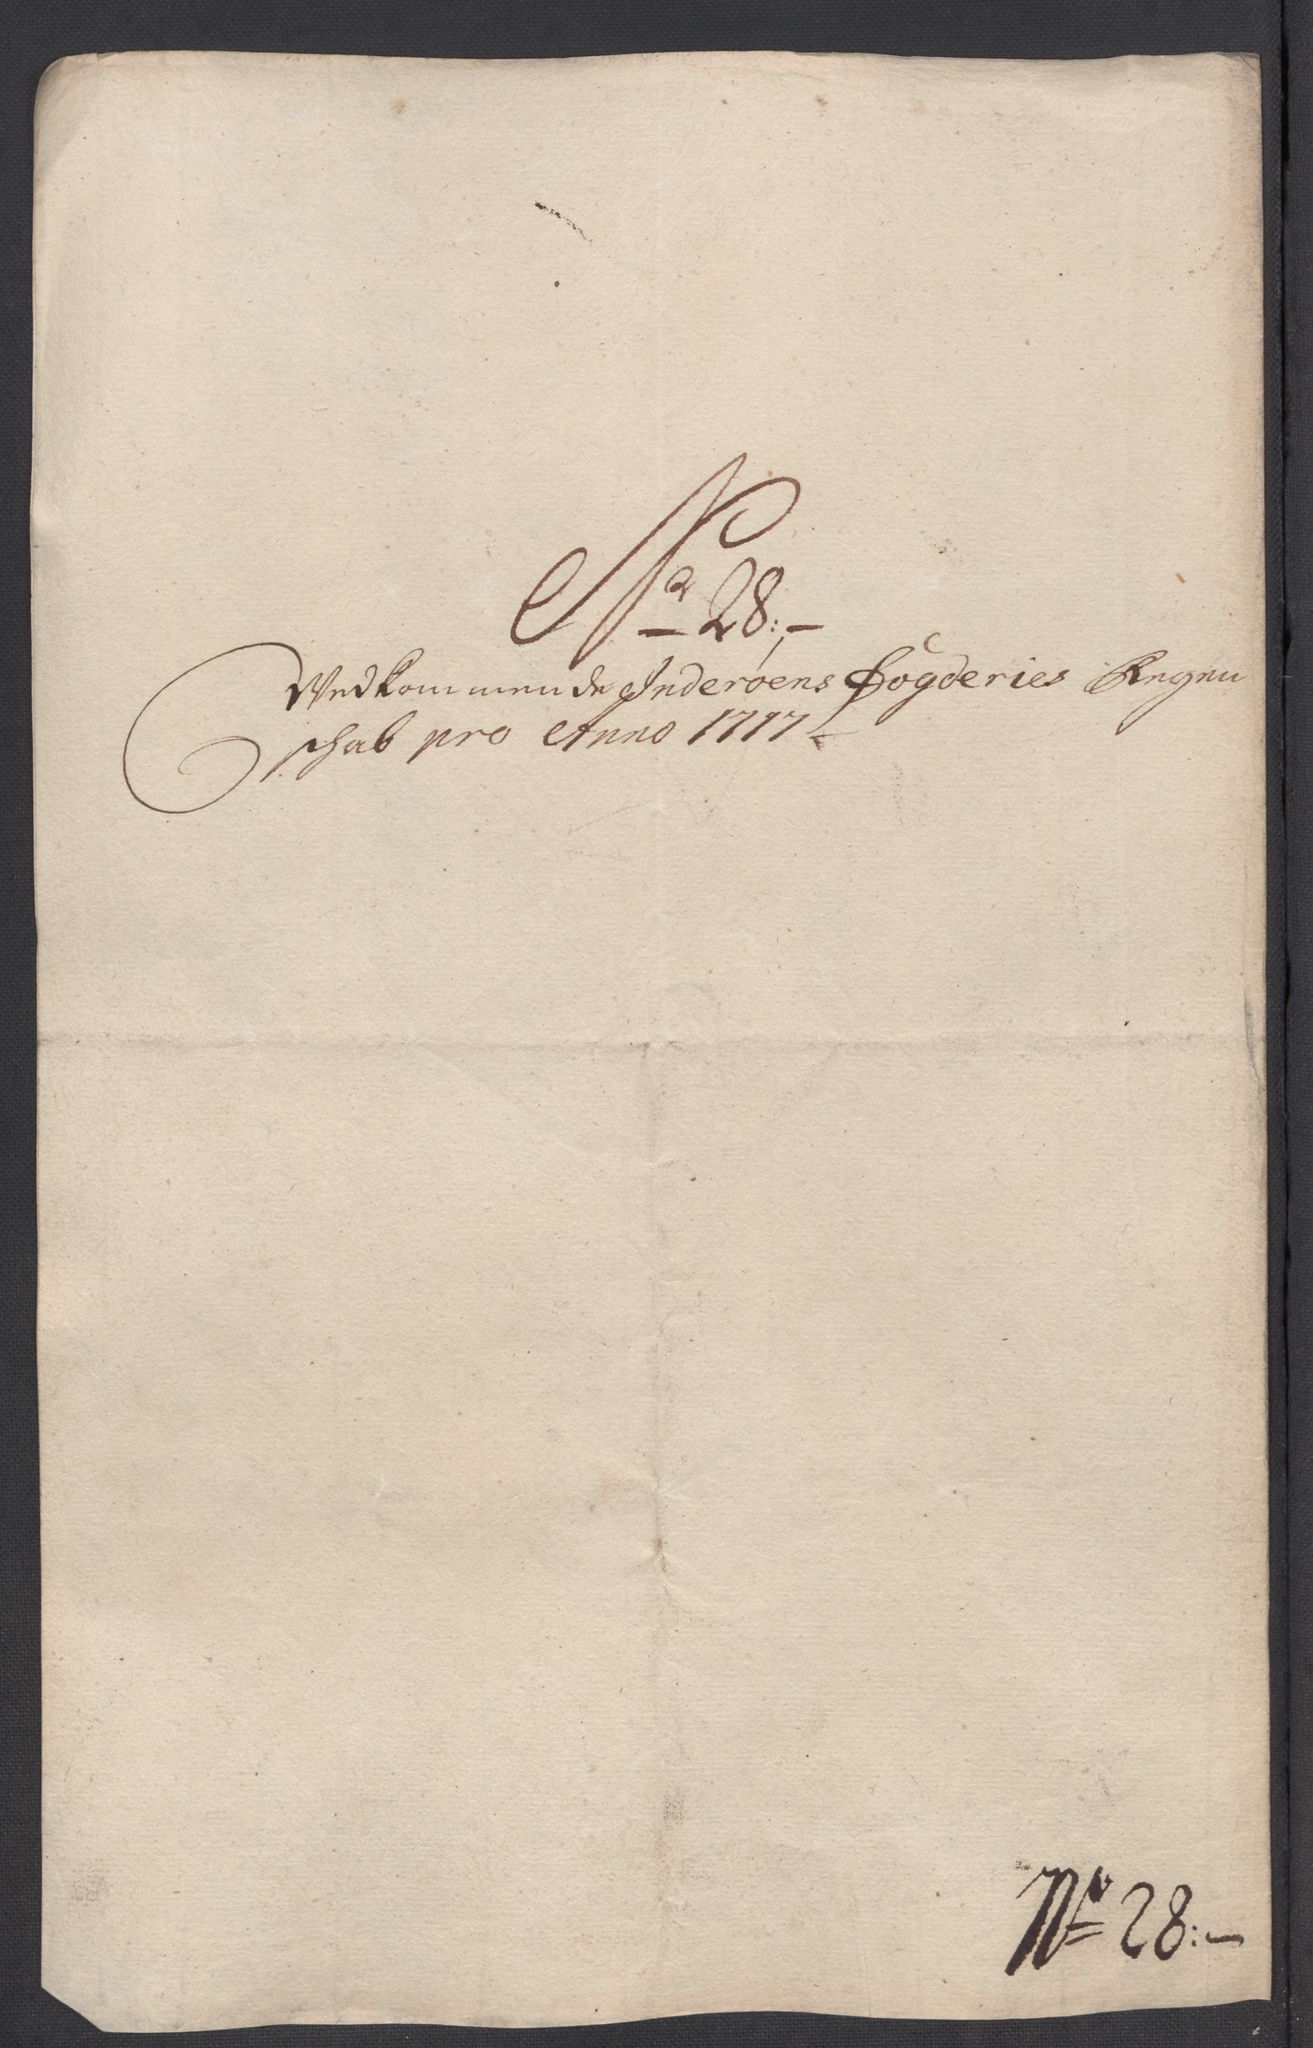 No 28:-
Vedkommende Inderøens Fogderies Regen
schab pro Anno 1717
No 28:-